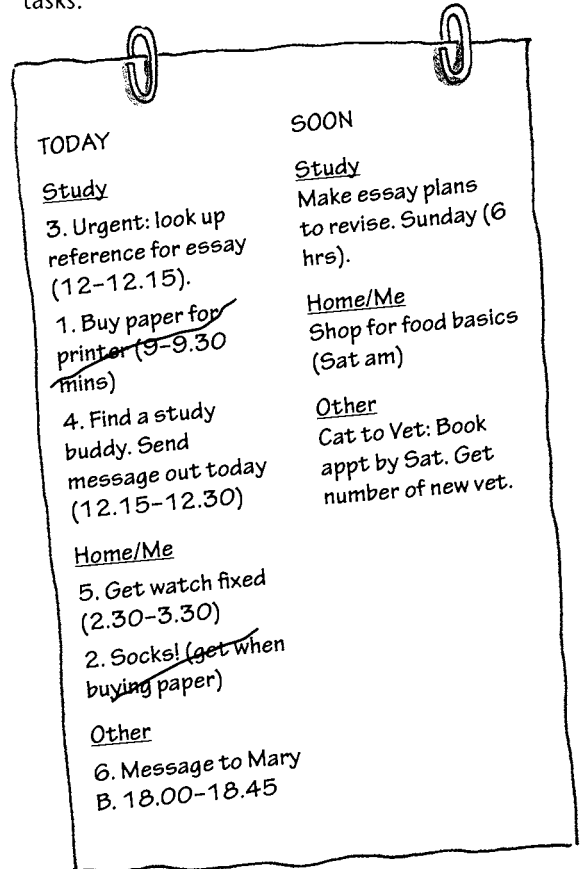 tasks.
TODAY
Study
3. Urgent: look up
reference for essay
(12–12.15).
1. Buy paper for
printer (9–9.30
mins)
4. Find a study
buddy. Send
message out today
(12.15–12.30)
Home/Me
5. Get watch fixed
(2.30–3.30)
2. Socks! (get when
buying paper)
Other
6. Message to Mary
B. 18.00–18.45
SOON
Study
Make essay plans
to revise. Sunday (6
hrs).
Home/Me
Shop for food basics
(Sat am)
Other
Cat to Vet: Book
appt by Sat. Get
number of new vet.